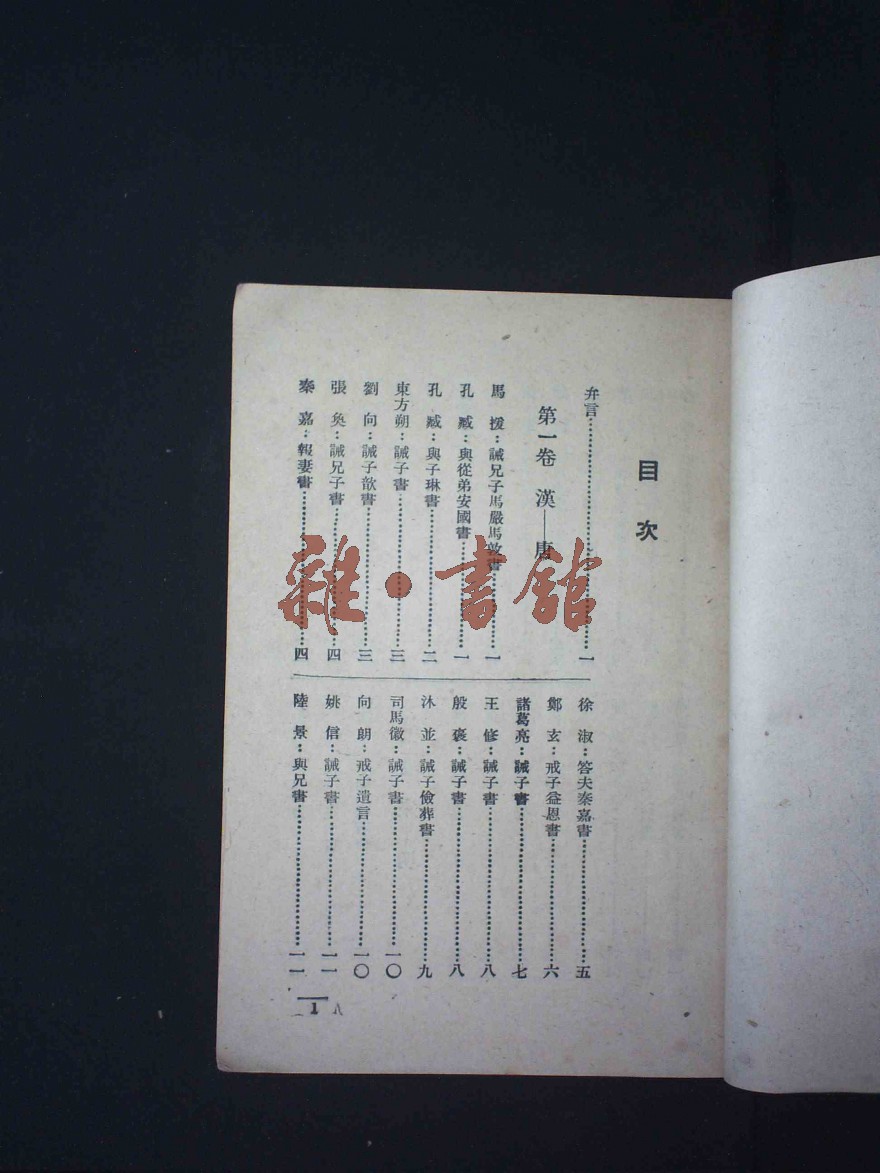 目次
弁言……一
第一卷 漢——唐
馬援：誡兄子馬嚴馬敦書……一
孔臧：與從弟安國書……一
孔臧：與子琳書……二
東方朔：誡子書……三
劉向：誡子歆書……三
張奐：誡兄子書……四
秦嘉：報妻書……四
徐淑：答夫秦嘉書……五
鄭玄：戒子益恩書……六
諸葛亮：誡子書……七
王修：誡子書……八
殷褒：誡子書……八
沐並：誡子儉葬書……九
司馬徽：誡子書……一〇
向朗：戒子遺言……一〇
姚信：誡子書……一一
陸景：與兄書……一一
1
雜·書館